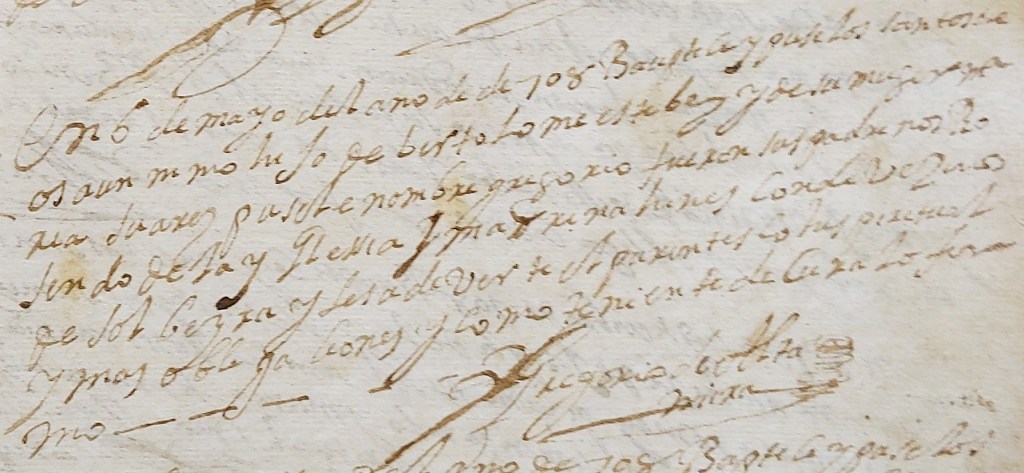 En 6 de mayo del año de de 708 Baptice y puse los santos ole
os a un nino hijo de bertolome estebez y de su muger ma
ria Suarez pusele nombre gregorio fueron sus padrinos Ro
sendo de la ygllesia y matrina hines Conde Vezinos
de sol beyra y les adeverti el parentesco espiritual
y mas obligaciones y como teniente de Cura lo fir
mo
Gregorio de Alta
mira
año de 708 Baptice y puse los